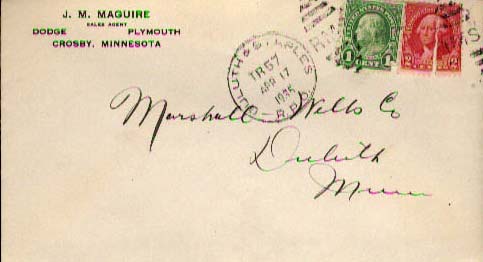 J. M. MAGUIRE
SALES AGENT
DODGE PLYMOUTH
CROSBY, MINNESOTA
DULUTH & STAPLES
TR57
APR 17
1935
R.P.O.
1 CENT 1
2 2
Marshall-Wells Co
Duluth
Minn